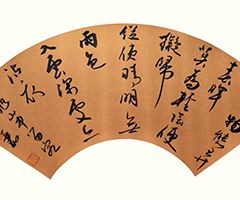 物態弄
春暉
莫為輕陰便
擬歸
縱使晴明無
雨色
入雲深處亦
沾衣